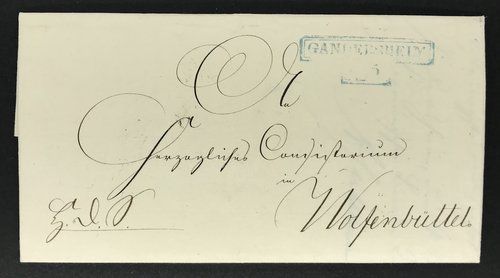 GANDERSHEIM
5
An
Herzogliches Consistorium
in
Wolfenbüttel.
H. D. S.